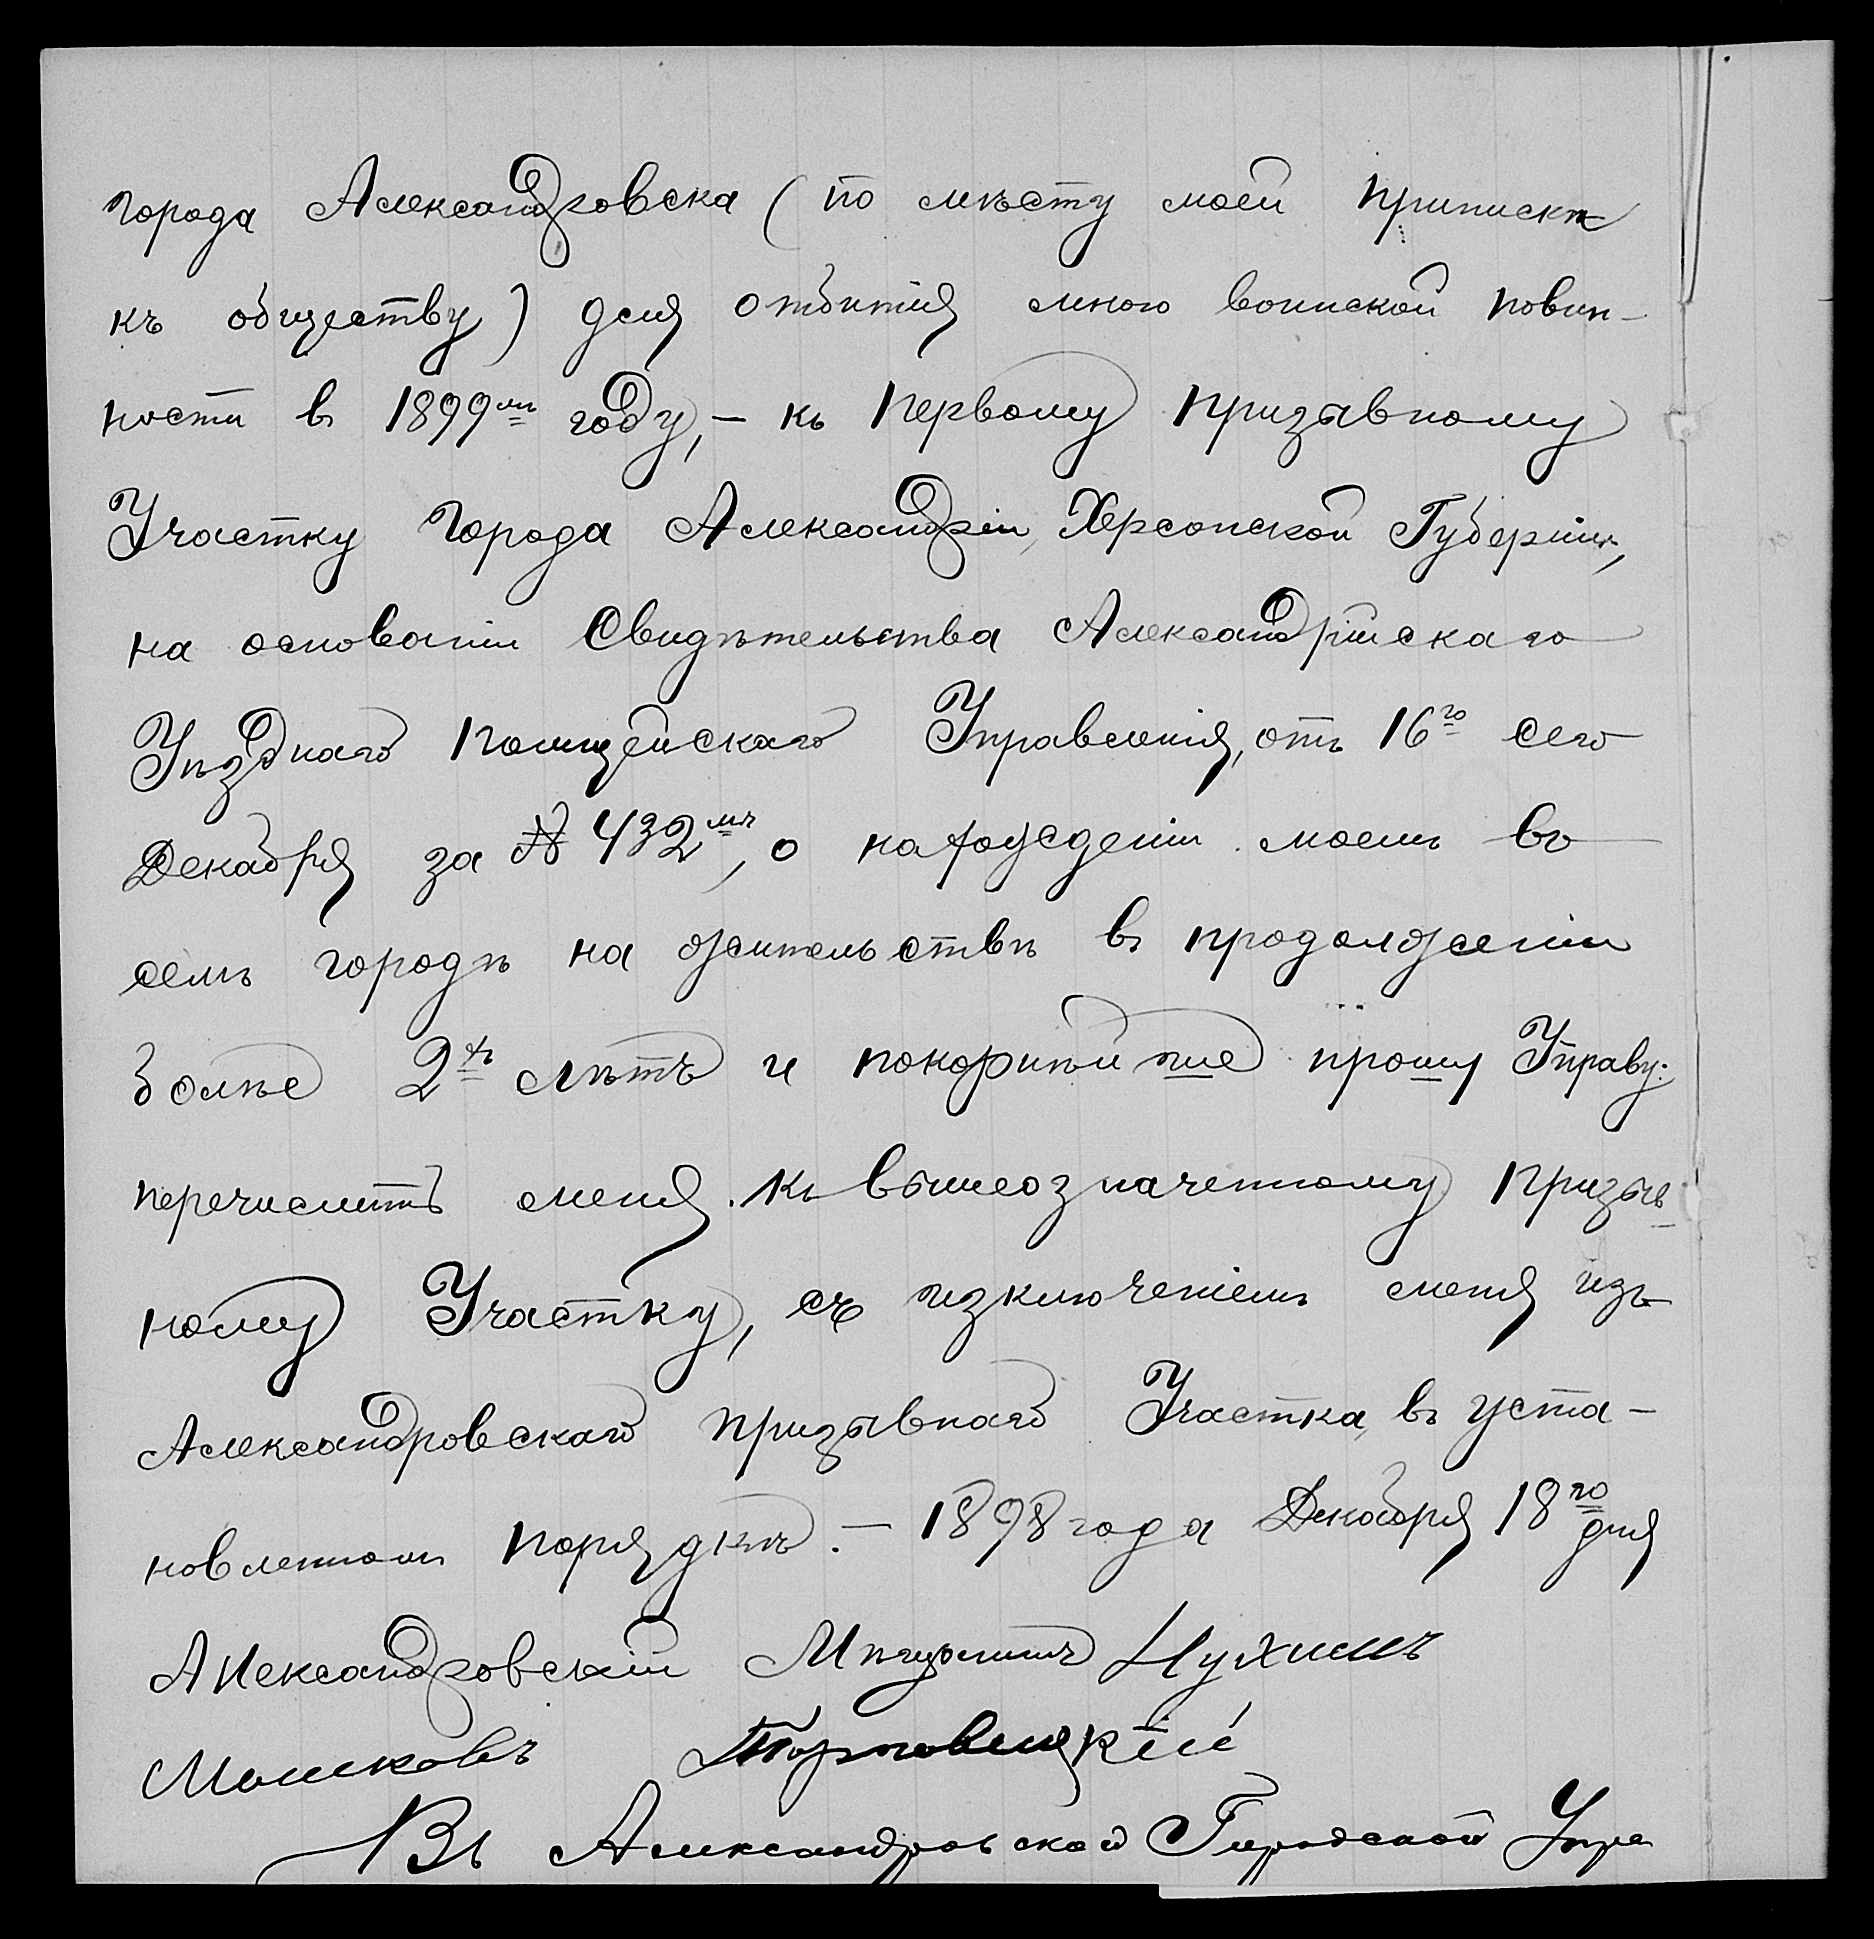 города Александровска (по мѣсту моей приписки
къ обществу) для отбытія мною воинской повин-
ности въ 1899мъ году, - къ первому призывному
Участку города Александріи, Херсонской Губерніи,
на основаніи Свидѣтельства Александрійскаго
Уѣзднаго Полицейскаго Управленія, отъ 16го сего
Декабря за № 432мъ, о нахожденіи моемъ въ
семъ городѣ на жительствѣ въ продолженіи
болѣе 2хъ лѣтъ и покорнѣйше прошу Управу
перечислить меня къ вышеозначенному призыв-
ному Участку, съ изключеніемъ меня изъ
Александровскаго призывнаго Участка, въ уста-
новленномъ порядкѣ. - 1898 года Декабря 18го дня
Александровскій Мѣщанинъ Нухимъ
Мошковъ Торговицкій
Въ Александровской Городской Упра